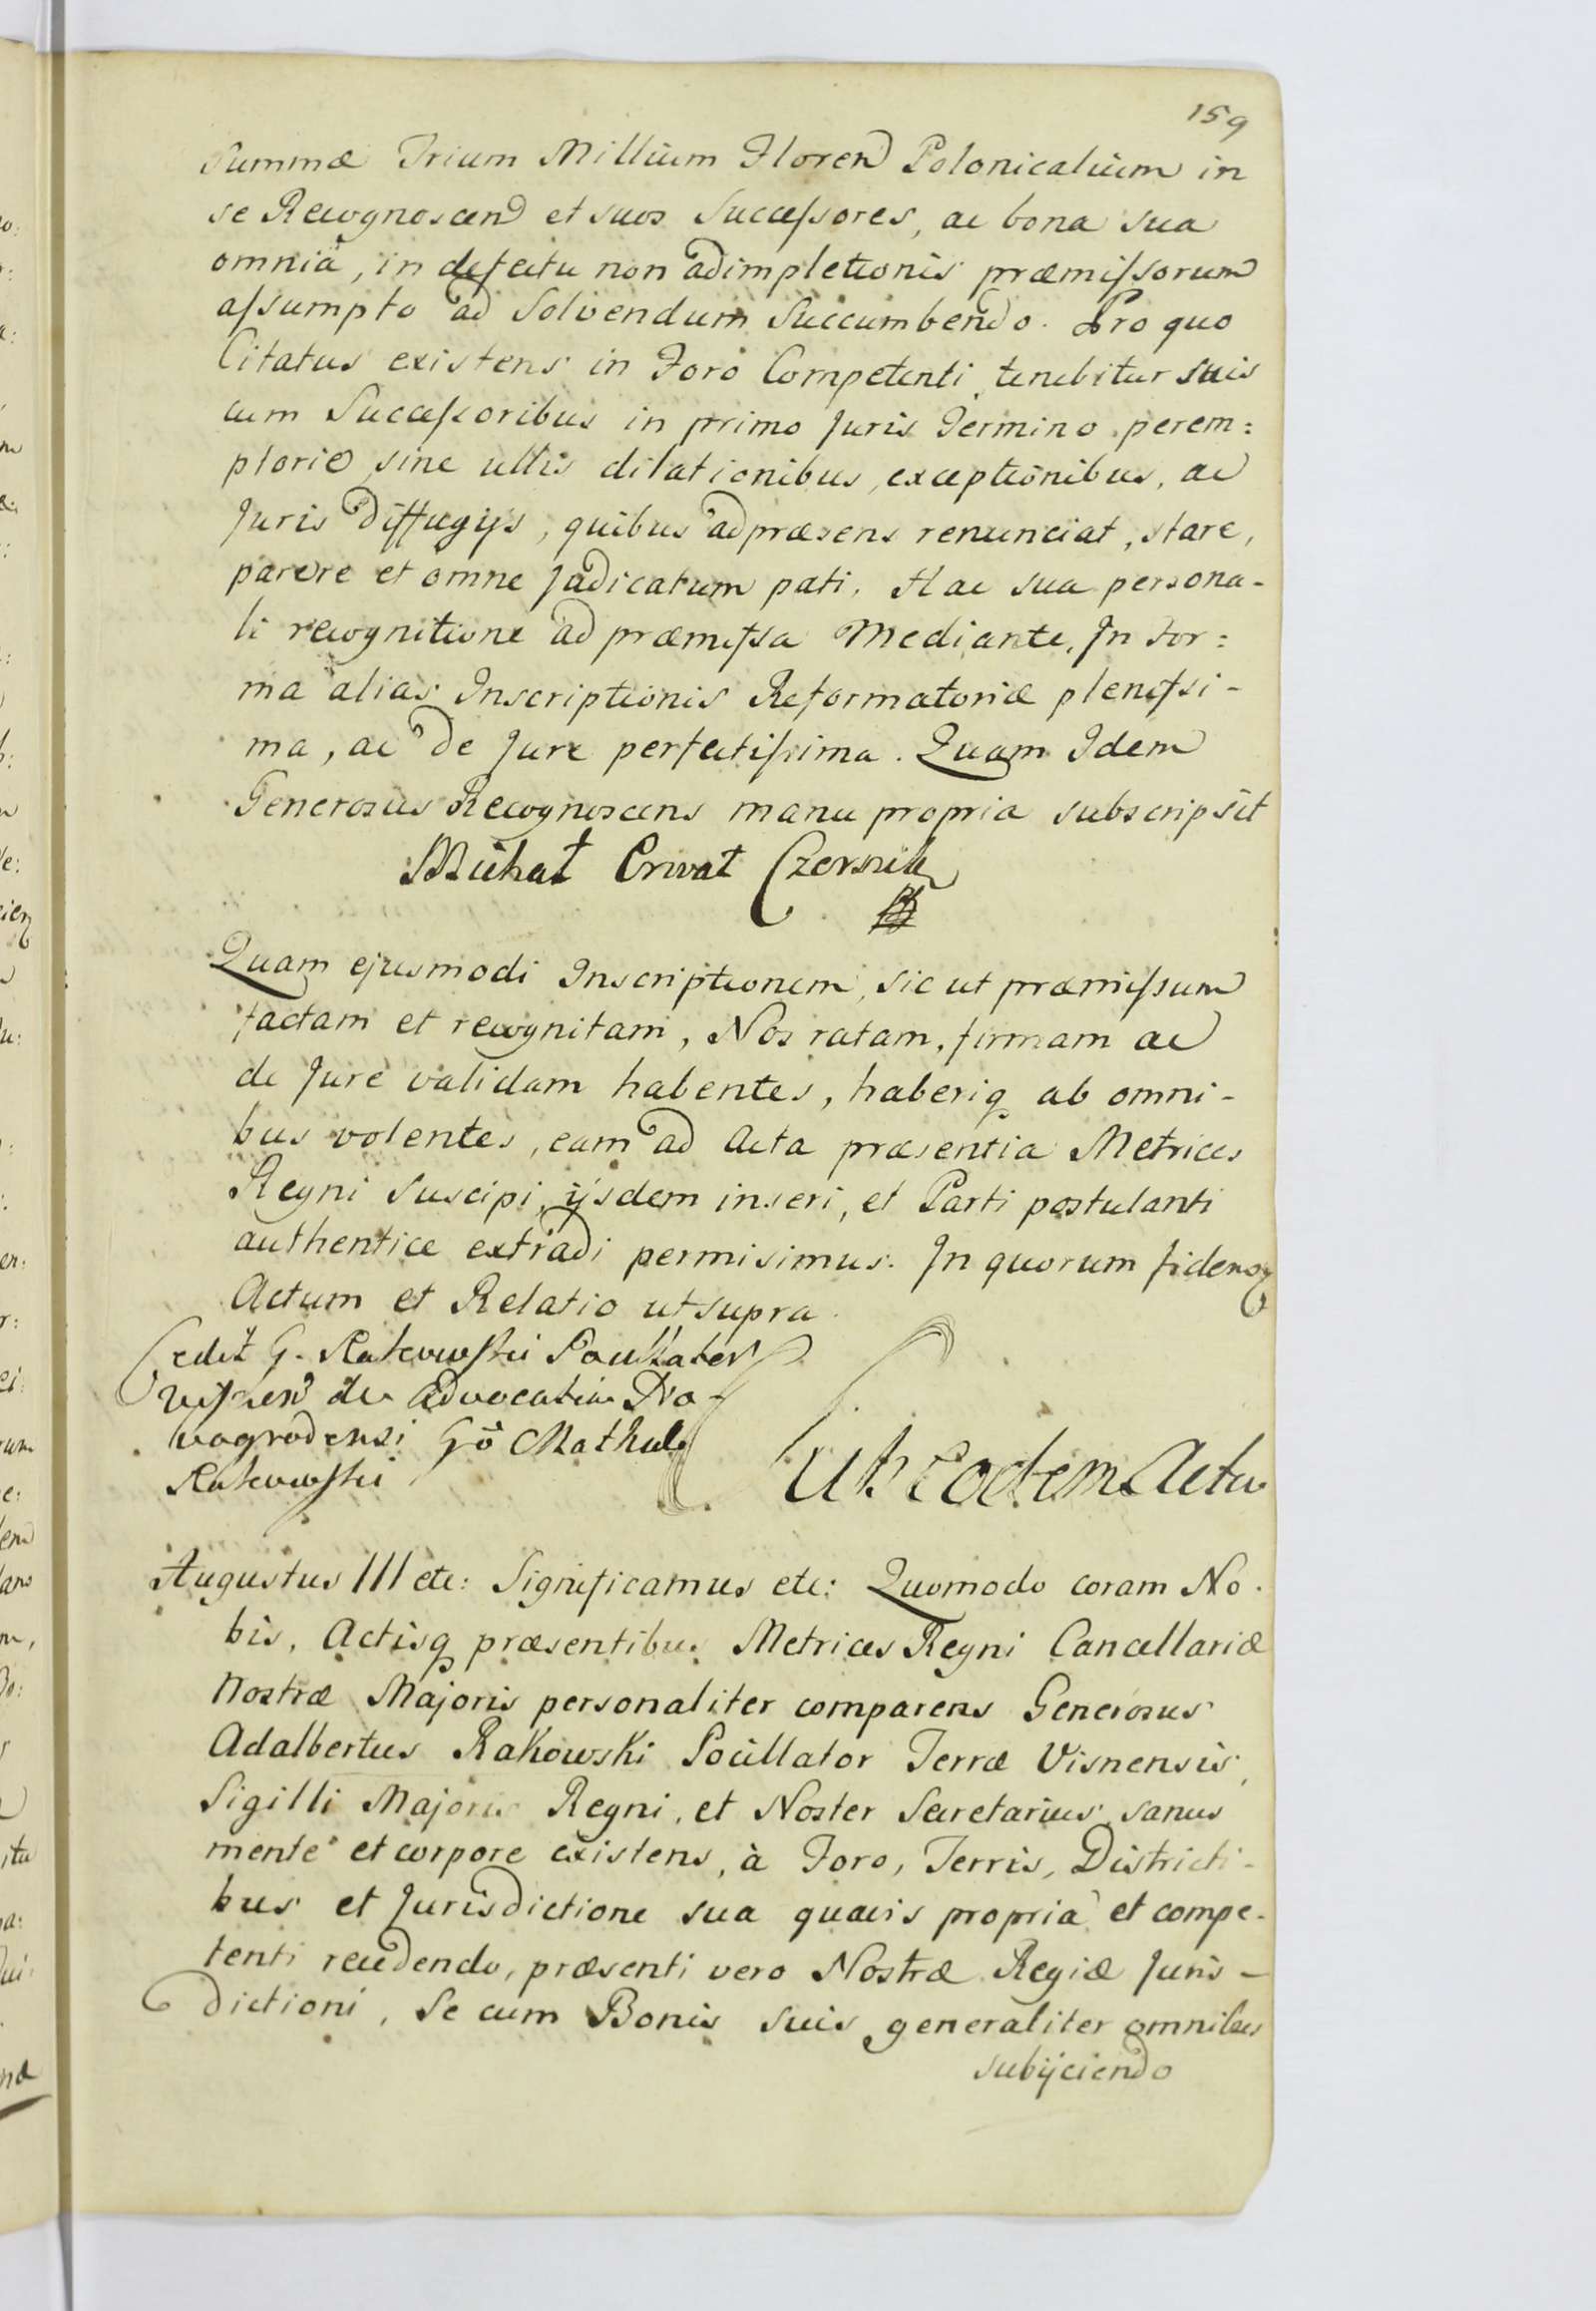 159
Summæ Trium Millium Floren Polonicalium in
se Recognoscen et suos Successores, ac bona sua
omnia, in defectu non adimpletionis præmissorum
assumpto ad Solvendum Succumbendo. Pro quo
Citatus existens in Foro Competenti tenebitur suis
cum Successoribus in primo Juris Termino perem:
ptorie, sine ullis dilationibus, exceptionibus, ac
Juris Diffugijs, quibus ad præsens renunciat, stare,
parere et omne Judicatum pati. Hac sua persona-
li recognitione ad præmissa Mediante, In For:
ma alias Inscriptionis Reformatoriæ plenissi-
ma, ac De Jure perfectissima. Quam Idem
Generosus Recognoscens manu propria subscripsit
Michał Czersnik
Quam ejusmodi Inscriptionem, sic ut præmissum
factam et recognitam, Nos ratam, firmam ac
de Jure validam habentes, haberiq ab omni-
bus volentes, eam ad Acta præsentia Metrices
Regni Suscipi, ijsdem inseri, et Parti postulanti
authentice extradi permisimus. In quorum fidem
Actum et Relatio ut supra.
Cedit G. Rakowski Pocillator
Visnen de advocatia No-
vogrodensi Gō Mathule
Rakowski
Sub eodem Actu
Augustus III etc: Significamus etc: Quomodo coram No-
bis, Actisq præsentibus Metrices Regni Cancellariæ
Nostræ Majoris personaliter comparens Generosus
Adalbertus Rakowski Pocillator Terræ Visnensis,
Sigilli Majoris Regni, et Noster Secretarius, sanus
mente et corpore existens, à Foro, Terris, Districti-
bus et Jurisdictione sua quavis propria et compe-
tenti recedendo, præsenti vero Nostræ Regiæ Juris-
dictioni, Se cum Bonis suis generaliter omnibus
subijciendo